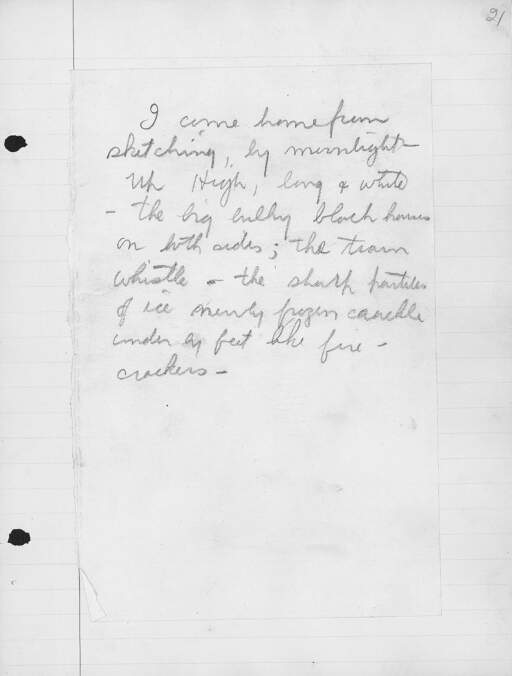 21
I come home from
sketching, by moonlight -
Up High, long & white
- the big bulky black houses
on both sides; the train
whistle - the sharp particles
of ice newly frozen crackle
under my feet like fire -
crackers -